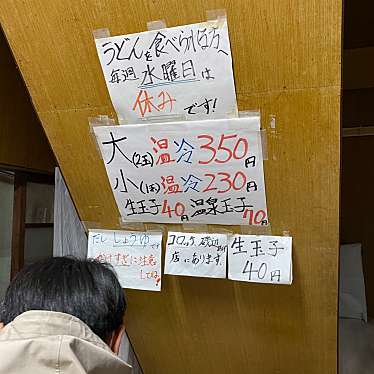 うどんを食べられる方、
毎週水曜日は
休みです!
大(2玉)温冷350円
小(1玉)温冷230円
生玉子40円 温泉玉子70円
だししょうゆです
かけすぎに注意
してね!
コロッケ
店にあります。
生玉子
40円